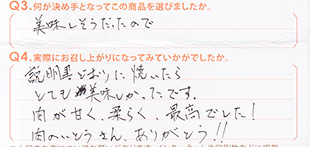 Q3.何が決め手となってこの商品を選びましたか。
美味しそうだったので
Q4.実際にお召し上がりになってみていかがでしたか。
説明書どおりに焼いたら
とても美味しかったです。
肉が甘く、柔らく、最高でした!
肉のいとうさん、ありがとう!!